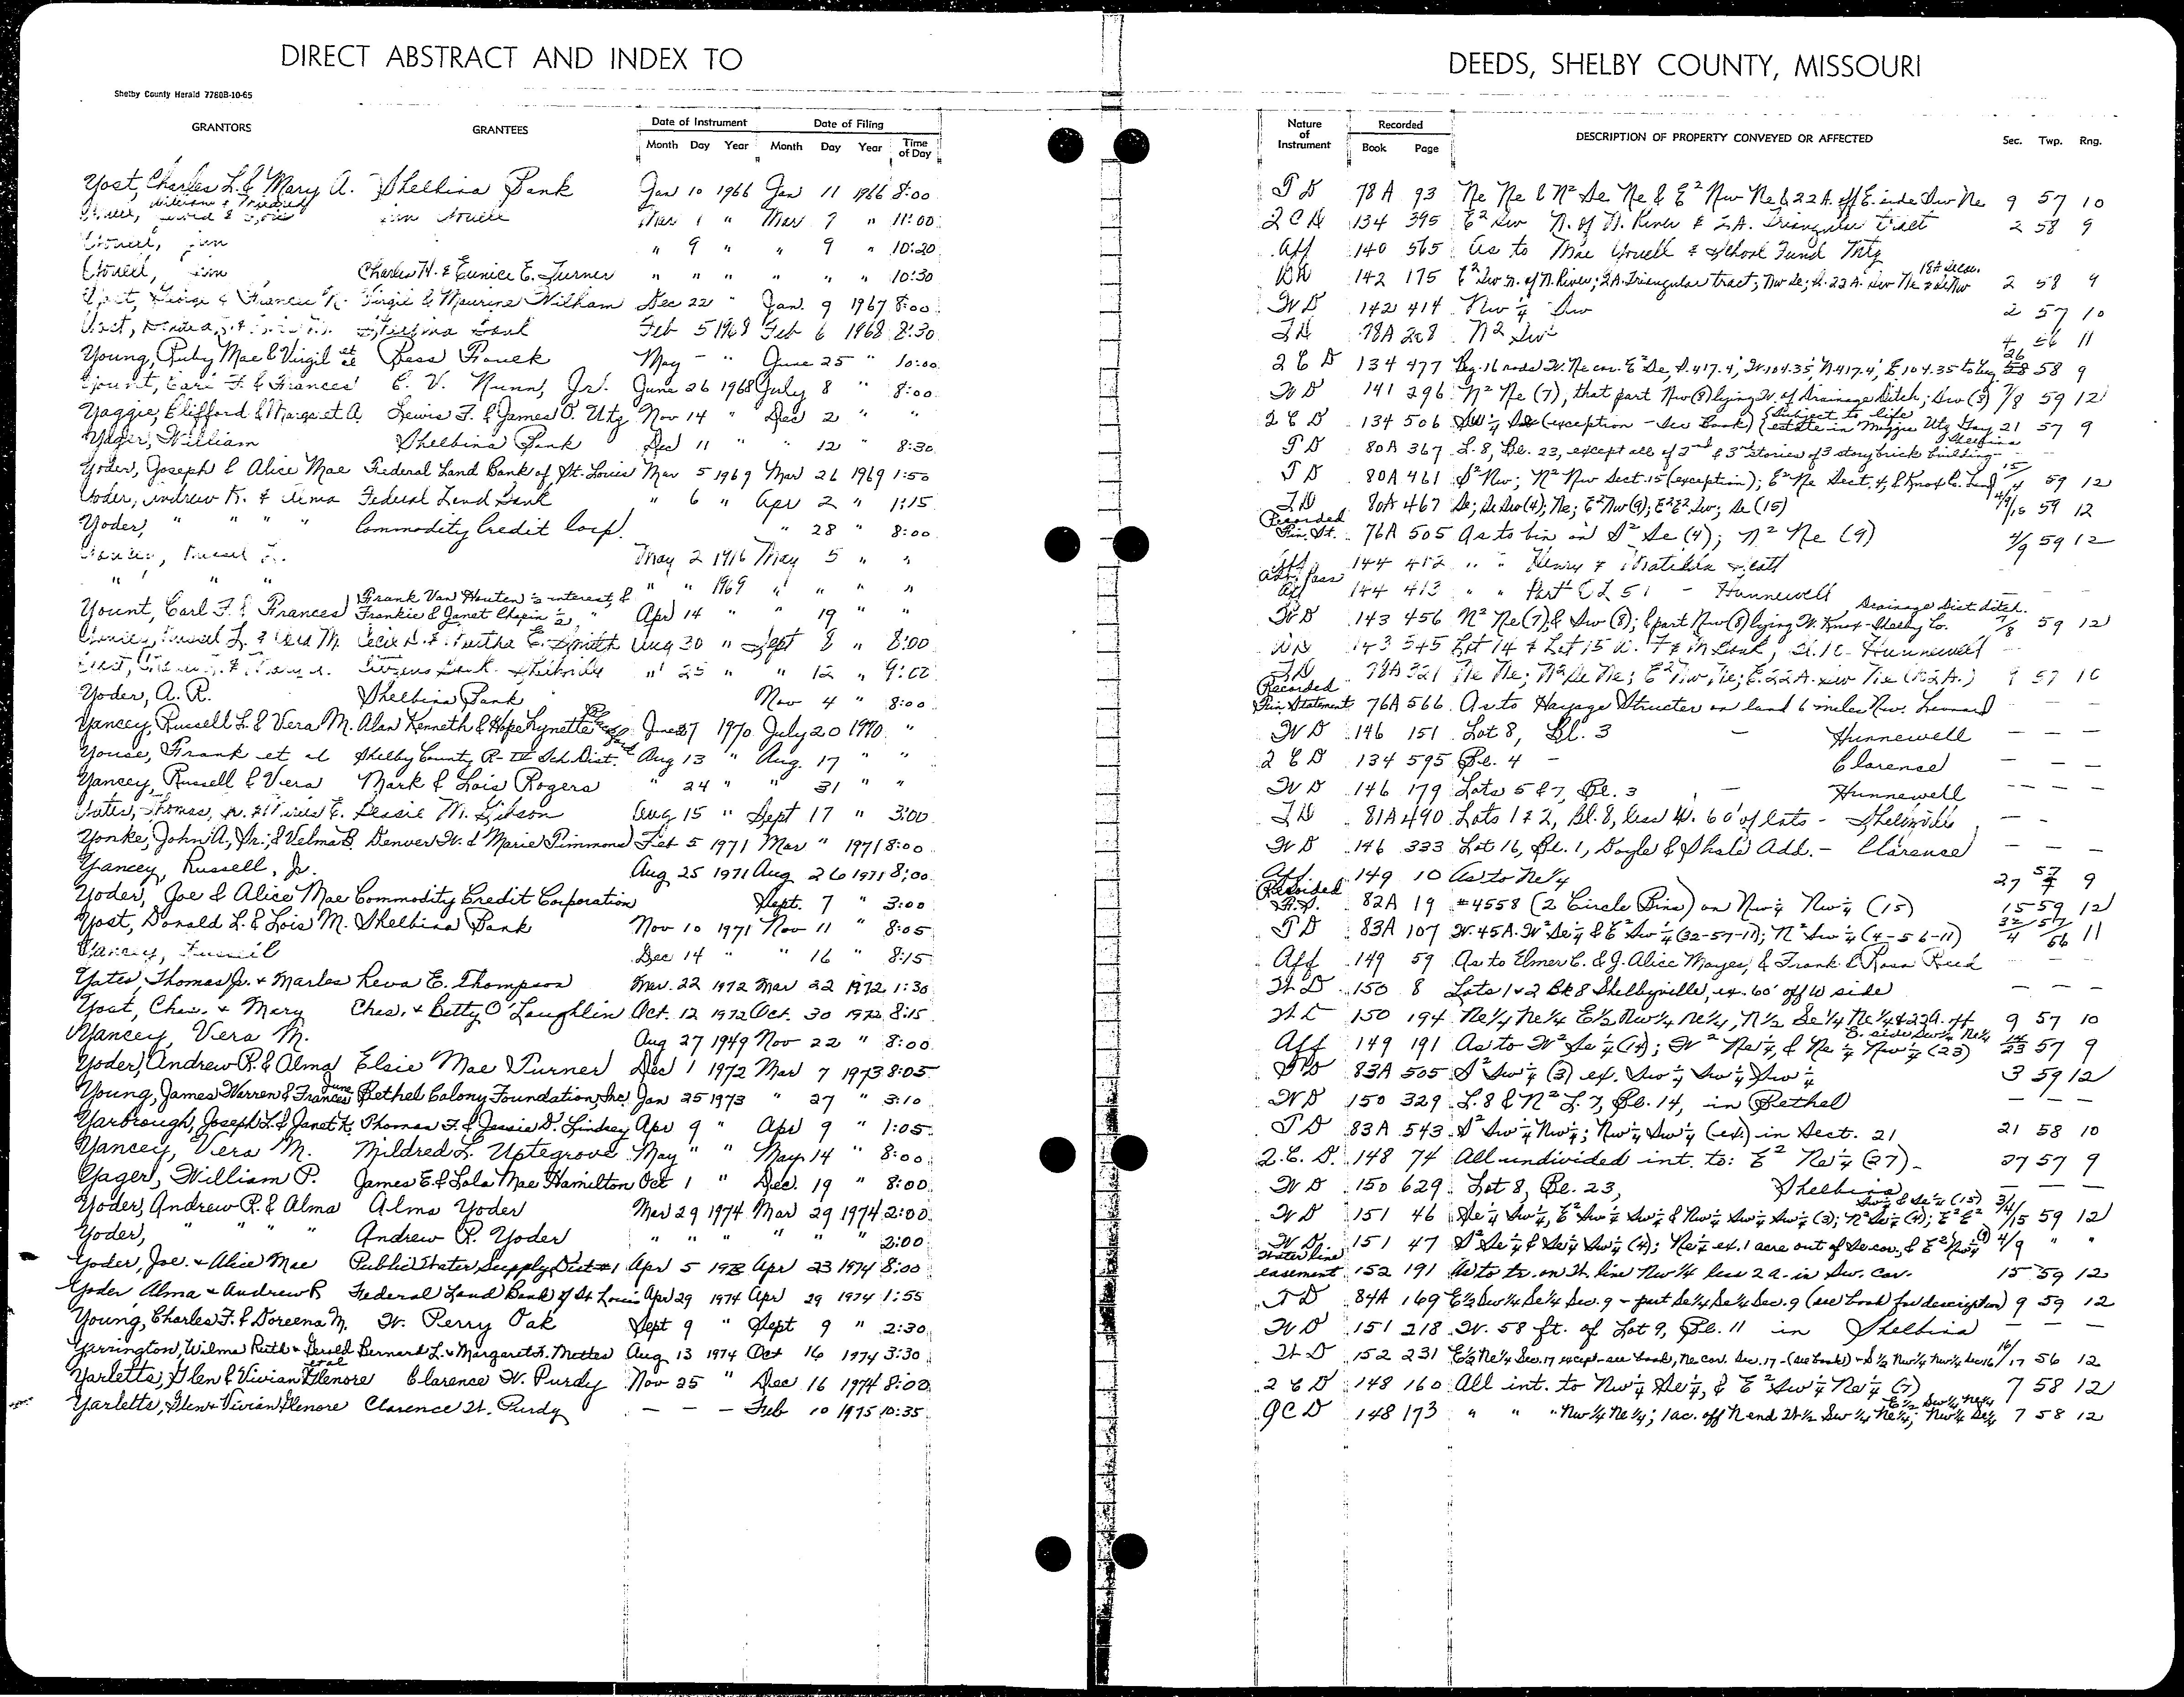 DIRECT ABSTRACT AND INDEX TO
DEEDS, SHELBY COUNTY, MISSOURI
Shelby County Herald 7780B-10-65
GRANTORS GRANTEES Date of Instrument Date of Filing
Month Day Year Month Day Year Time of Day
Nature of Instrument Recorded Book Page DESCRIPTION OF PROPERTY CONVEYED OR AFFECTED Sec. Twp. Rng.
Yost, Charles L. & Mary A. Shelbina Bank Jan 10 1966 Jan 11 1966 8:00 T D 78A 93 Ne Ne & N² Se Ne & E² Nw Ne & 22 A. off E. side Sw Ne 9 57 10
Mar 1 " Mar 7 " 11:00 2 C D 134 395 E² Sw N. of N. River & 2A. Triangular tract 2 58 9
" 9 " " 9 " 10:20 Aff 140 565 As to Mae Youell & School Fund Mtg
Charles H. & Eunice E. Turner " " " " " " 10:30 142 175 E² Sw n. of N. River; 2A. Triangular tract; Nw Se; 2 58 9
Virgil & Maurine Witham Dec 22 " Jan. 9 1967 8:00 W D 142 414 Nw ¼ Sw 2 57 10
Feb 5 1968 Feb 6 1968 8:30 78A 268 N² Sw 4 56 11
Young, Ruby Mae & Virgil et al Bess Fouck May - " June 25 " 10:00 2 C D 134 477 Beg. 16 rods W. Ne cor. E² Se, S. 417.4', W 104.35', N 417.4', E 104.35 to beg. 26 58 9
Yount, Carl F. & Frances C. V. Nunn, Jr. June 26 1968 July 8 " 8:00 W D 141 296 N² Ne (7), that part Nw (8) lying W. of Drainage Ditch; Sw (8) 7/8 59 12
Yaggie, Clifford & Margaret A. Lewis F. & James O. Utz Nov 14 " Dec 2 " " 2 C D 134 506 Sw ¼ (exception - See Book) (Subject to life estate in Maggie Utz Gay 21 57 9
Yager, William Shelbina Bank Dec 11 " " 12 " 8:30 T D 80A 367 L. 8, Bl. 23, except all of 2nd & 3rd stories of 3 story brick building - Shelbina
Yoder, Joseph & Alice Mae Federal Land Bank of St. Louis Mar 5 1969 Mar 26 1969 1:50 T D 80A 461 S² Nw; N² Nw Sect. 15 (exception); E² Ne Sect. 4, & Knox Co. Land 15/4 59 12
Yoder, Andrew R. & Alma Federal Land Bank " 6 " Apr 2 " 1:15 T D 80A 467 Se; Se Sw (4); Ne; E² Nw (9); E² E² Sw; Se (15) 4/9/15 59 12
Yoder, " " " " Commodity Credit Corp. " 28 " 8:00 Recorded Fin. St. 76A 505 As to bin on S² Se (4); N² Ne (9) 4/9 59 12
Yancey, Russel L. May 2 1916 May 5 " " Aff 144 412 " " Henry &
" " " " " 1969 " " " " Aff 144 413 " " Part O L 51 - Hunnewell
Yount, Carl F. & Frances Frank Van Houten ½ interest, & Frankie & Janet Chapin ½ " Apr 14 " " 19 " " W D 143 456 N² Ne (7), & Sw (8); & part Nw (8) lying W. Knox-Shelby Co. Drainage Dist ditch. 7/8 59 12
Yancey, Russell L. & Vera M. Cecil D. & Bertha E. Smith Aug 30 " Sept 8 " 8:00 W D 143 545 Lot 14 & Lot 15 Hunnewell
Citizens Bank - Shelbyville " 25 " " 12 " 9:00 T D 78A 321 Ne Ne; N² Se Ne; E² Nw Ne; E. 22 A. Sw Ne (22A.) 9 57 10
Yoder, A. R. Shelbina Bank Nov 4 " 8:00 Recorded Fin. Statement 76A 566 As to Hayage Structer on land 6 miles Nw. Leonard
Yancey, Russell L. & Vera M. Alan Kenneth & Hope Lynette June 27 1970 July 20 1970 " W D 146 151 Lot 8, Bl. 3 - Hunnewell - - -
Youse, Frank et al Shelby County R-IV Sch. Dist. Aug 13 " Aug. 17 " " 2 C D 134 595 Bl. 4 - Clarence - - -
Yancey, Russell & Vera Mark & Lois Rogers " 24 " " 31 " " W D 146 179 Lots 5 & 7, Bl. 3 - Hunnewell - - -
Yates, Thomas, Jr. Bessie M. Gibson Aug 15 " Sept 17 " 3:00 T D 81A 490 Lots 1 & 2, Bl. 8, less W. 60' of lots - Shelbyville - -
Yonke, John A., Jr., & Velma B. Denver W. & Marie Timmons Feb 5 1971 Mar " 1971 8:00 W D 146 333 Lot 16, Bl. 1, Doyle & Shale Add. - Clarence - - -
Yancey, Russell, Jr. Aug 25 1971 Aug 26 1971 8:00 Aff. 149 10 As to Ne/4 27 57 9
Yoder, Joe & Alice Mae Commodity Credit Corporation Sept. 7 " 3:00 Recorded F.S. 82A 19 #4558 (2 Circle Bins) on Nw ¼ Nw ¼ (15) 15 59 12
Yost, Donald L. & Lois M. Shelbina Bank Nov 10 1971 Nov 11 " 8:05 T D 83A 107 W. 45A. W² Se ¼ & E² Sw ¼ (32-57-11); N² Sw ¼ (4-56-11) 32/4 57/56 11
Yancey, Russell Dec 14 " " 16 " 8:15 Aff 149 59 As to Elmer C. & J. Alice Mayes, & Frank & Rosa Reed - - -
Yates, Thomas Jr. & Marles Reva E. Thompson Mar. 22 1972 Mar 22 1972 1:30 W D 150 8 Lots 1 & 2 Bk 8 Shelbyville, ex. 60' off W side - - -
Yost, Chas. & Mary Chas. & Betty O'Laughlin Oct. 12 1972 Oct. 30 1972 8:15 W D 150 194 Ne¼ Ne¼ E½ Nw¼ Ne¼, N½ Se¼ Ne¼ & 22A. off E. side Sw¼ Ne¼ 9 57 10
Yancey, Vera M. Aug 27 1949 Nov 22 " 8:00 Aff 149 191 As to W² Se ¼ (14); W² Ne ¼, & Ne ¼ Nw ¼ (23) 14/23 57 9
Yoder, Andrew R. & Alma Elsie Mae Turner Dec 1 1972 Mar 7 1973 8:05 83A 505 S² Sw ¼ (3) ex. Sw ¼ Sw ¼ Sw ¼ 3 59 12
Young, James Warren & Frances June Bethel Colony Foundation, Inc. Jan 25 1973 " 27 " 3:10 W D 150 329 L. 8 & N² L. 7, Bl. 14, in Bethel - - -
Yarbrough, Joseph L. & Janet K. Thomas F. & Jessie D. Lindsey Apr 9 " Apr 9 " 1:05 T D 83A 543 S² Sw ¼ Nw ¼; Nw ¼ Sw ¼ (ex) in Sect. 21 21 58 10
Yancey, Vera M. Mildred L. Uptegrove May " " May 14 " 8:00 2. C. D. 148 74 All undivided int. to: E² Ne ¼ (27) - 27 57 9
Yager, William P. James E. & Lola Mae Hamilton Oct 1 " Dec. 19 " 8:00 W D 150 629 Lot 8, Bl. 23, Shelbina - - -
Yoder, Andrew R. & Alma Alma Yoder Mar 29 1974 Mar 29 1974 2:00 W D 151 46 Se ¼ Sw ¼, E² Sw ¼ Sw ¼ & Nw ¼ Sw ¼ Sw ¼ (3); N² Se ¼ (4); E² E² Sw ¼ & Se ¼ (15) 3/4/15 59 12
Yoder, " " " " Andrew R. Yoder " " " " " " 2:00 W D 151 47 S² Se ¼ & Se ¼ Sw ¼ (4); Ne ¼ ex. 1 acre out of Se cor., & E² Nw ¼ (9) 4/9 " "
Yoder, Joe. & Alice Mae Public Water Supply Dist #1 Apr 5 1973 Apr 23 1974 8:00 Water line easement 152 191 As to tr. on W. line Nw ¼ less 2 a. in Sw. Cor. 15 59 12
Yoder Alma & Andrew R Federal Land Bank of St Louis Apr 29 1974 Apr 29 1974 1:55 T D 84A 169 E½ Sw¼ Se¼ Sec. 9 - part Se¼ Se¼ Sec. 9 (see book for description) 9 59 12
Young, Charles F. & Doreena M. W. Perry Oak Sept 9 " Sept 9 " 2:30 W D 151 218 W. 58 ft. of Lot 9, Bl. 11 in Shelbina - - -
Yarrington, Wilma Ruth & Derald et al Bernard L. & Margaret F. Mettes Aug 13 1974 Oct 16 1974 3:30 W D 152 231 E½ Ne¼ Sec. 17 except - see book, Ne cor. Sec. 17 - (see book) - S½ Nw¼ Nw¼ Sec 16 16/17 56 12
Yarletts, Glen & Vivian Glenore Clarence W. Purdy Nov 25 " Dec 16 1974 8:00 2 C D 148 160 All int. to Nw ¼ Se ¼, & E² Sw ¼ Ne ¼ (7) 7 58 12
Yarletts, Glen & Vivian Glenore Clarence W. Purdy - - - Feb 10 1975 10:35 Q C D 148 173 " " " Nw ¼ Ne ¼; 1 ac. off N end W½ Sw ¼ Ne ¼; E½ Sw¼ Ne¼ Nw¼ Se¼ 7 58 12